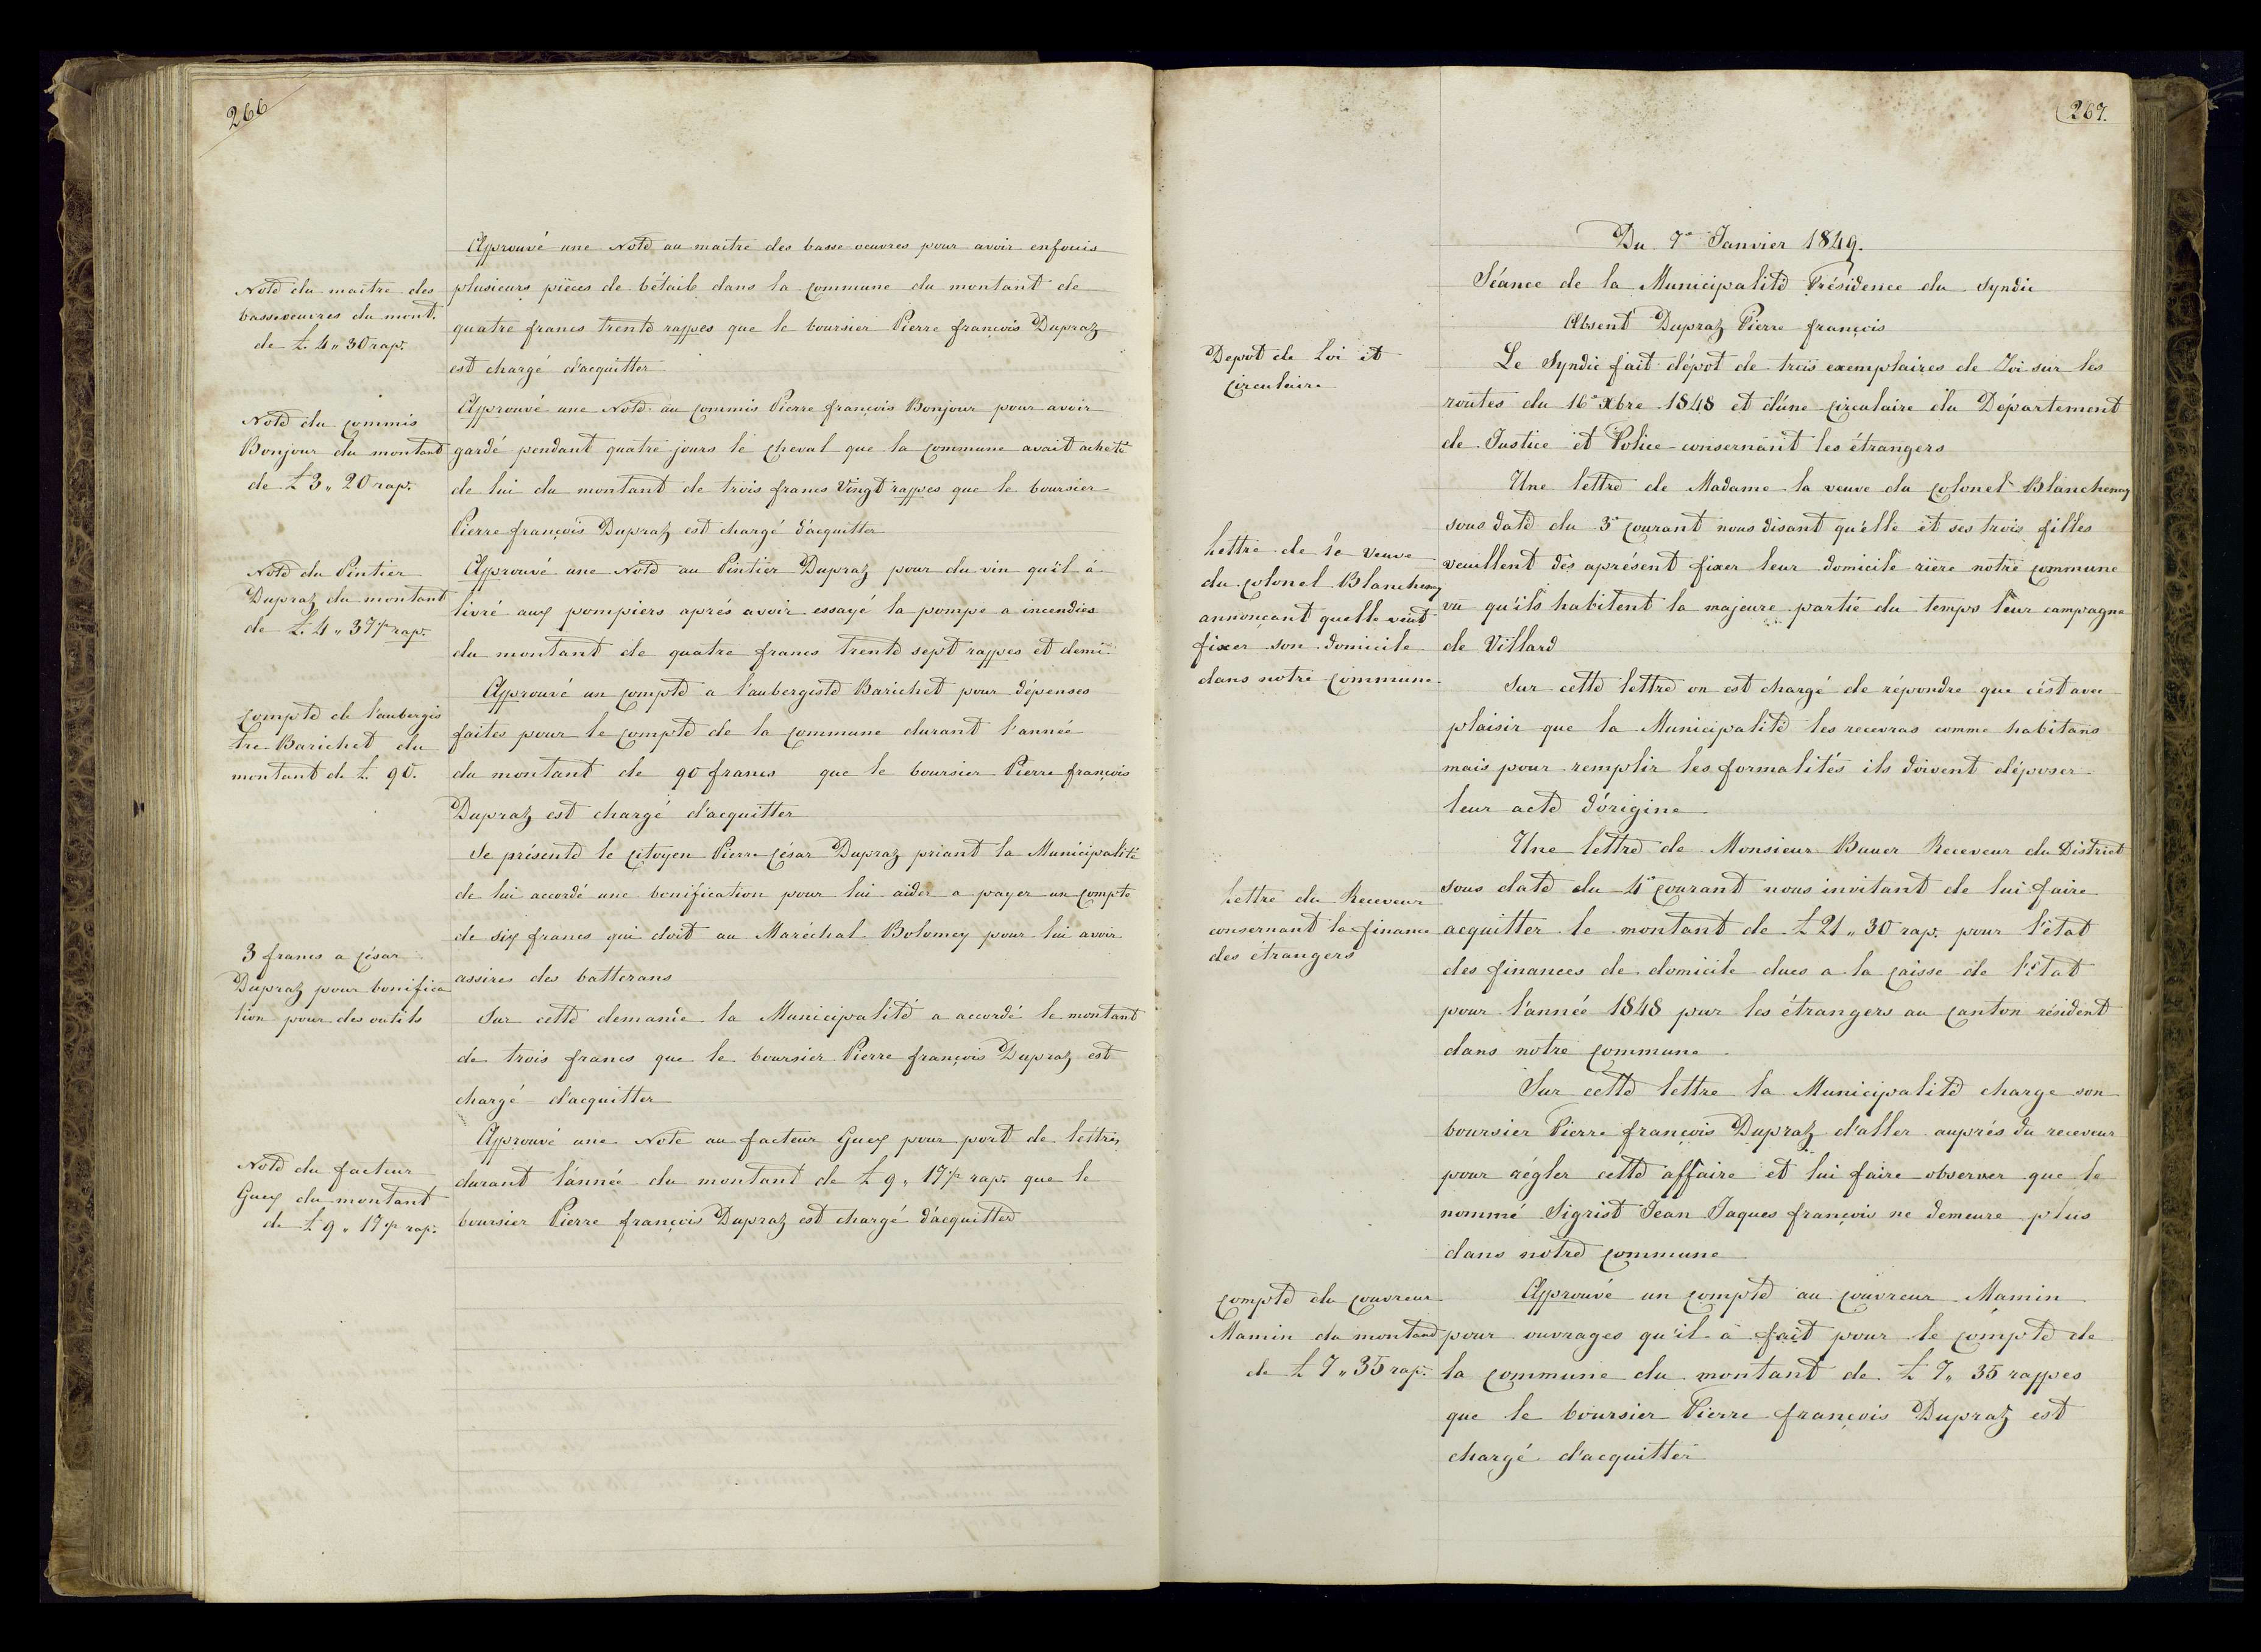 266
Approuvé une Note au maitre des basse oeuvres pour avoir enfouis
plusieurs pièces de bétaile dans la commune du montant de
quatre francs trente rappes que le boursier Pierre françois Dupraz
est chargé d'acquitter
Note du maitre des
basse oeuvres du mont.
de £. 4 " 30 rap.
Approuvé une Note au commis Pierre françois Bonjour pour avoir
gardé pendant quatre jours le cheval que la commune avait acheté
de lui du montant de trois francs Vingt rappes que le boursier
Pierre françois Dupraz est chargé d'acquitter
Note du commis
Bonjour du montant
de £ 3 " 20 rap.
Approuvé une Note au Pintier Dupraz pour du vin qu'il à
livré aux pompiers aprés avoir essayé la pompe a incendies
du montant de quatre francs trente sept rappes et demi
Note du Pintier
Dupraz du montant
de £. 4 " 37½ rap.
Approuvé un compte a l'aubergiste Barichet pour dépenses
faites pour le compte de la commune durant l'année
du montant de 90 francs que le boursier Pierre françois
Dupraz est chargé d'acquitter
compte de l'aubergis
tre Barichet du
montant de £. 90.
Se présente le citoyen Pierre césar Dupraz priant la Municipalité
de lui accordé une bonification pour lui aider a payer un compte
de six francs qui doit au Maréchal Bolomey pour lui avoir
assires des batterans
Sur cette demande la Municipalité a accordé le montant
de trois francs que le boursier Pierre françois Dupraz est
chargé d'acquitter
3 francs a césar
Dupraz pour bonifica
tion pour des outils
Approuvé une Note au facteur Guex pour port de lettres
durant l'année du montant de £ 9 " 17½ rap. que le
boursier Pierre françois Dupraz est chargé d'acquitter
Note du facteur
Guex du montant
de £ 9 " 17½ rap.
267.
Du 7e Janvier 1849.
Séance de la Municipalité Présidence du Syndic
Absent Dupraz Pierre françois
Le Syndic fait dépot de trois exemplaires de Loi sur les
routes du 16e Xbre 1848 et d'une circulaire du Département
de Justice et Police consernant les étrangers
Depot de Loi et
circulaire
Une lettre de Madame la veuve du colonel Blanchenay
sous date du 3e courant nous disant qu'elle et ses trois filles
veuillent dès aprésent fixer leur domicile rière notre commune
vu qu'ils habitent la majeure partie du temps leur campagne
de Villard
Lettre de la veuve
du colonel Blanchenay
annonçant quelle veut
fixer son domicile
dans notre commune
Sur cette lettre on est chargé de répondre que c'est avec
plaisir que la Municipalité les recevras comme habitans
mais pour remplir les formalités ils doivent déposer
leur acte d'origine
Une lettre de Monsieur Bauer Receveur du District
sous date du 4e courant nous invitant de lui faire
acquitter le montant de £ 21 " 30 rap. pour l'état
des finances de domicile dues a la caisse de l'état
pour l'année 1848 pour les étrangers au canton résident
dans notre commune
Lettre du Receveur
consernant la finance
des étrangers
Sur cette lettre la Municipalité charge son
boursier Pierre françois Dupraz d'aller auprés du receveur
pour régler cette affaire et lui faire observer que le
nommé Sigrist Jean Jaques françois ne demeure plus
dans notre commune
Approuvé un compte au couvreur Mamin
pour ouvrages qu'il à fait pour le compte de
la commune du montant de £ 7 " 35 rappes
que le boursier Pierre françois Dupraz est
chargé d'acquitter
compte du couvreur
Mamin du montant
de £ 7 " 35 rap.